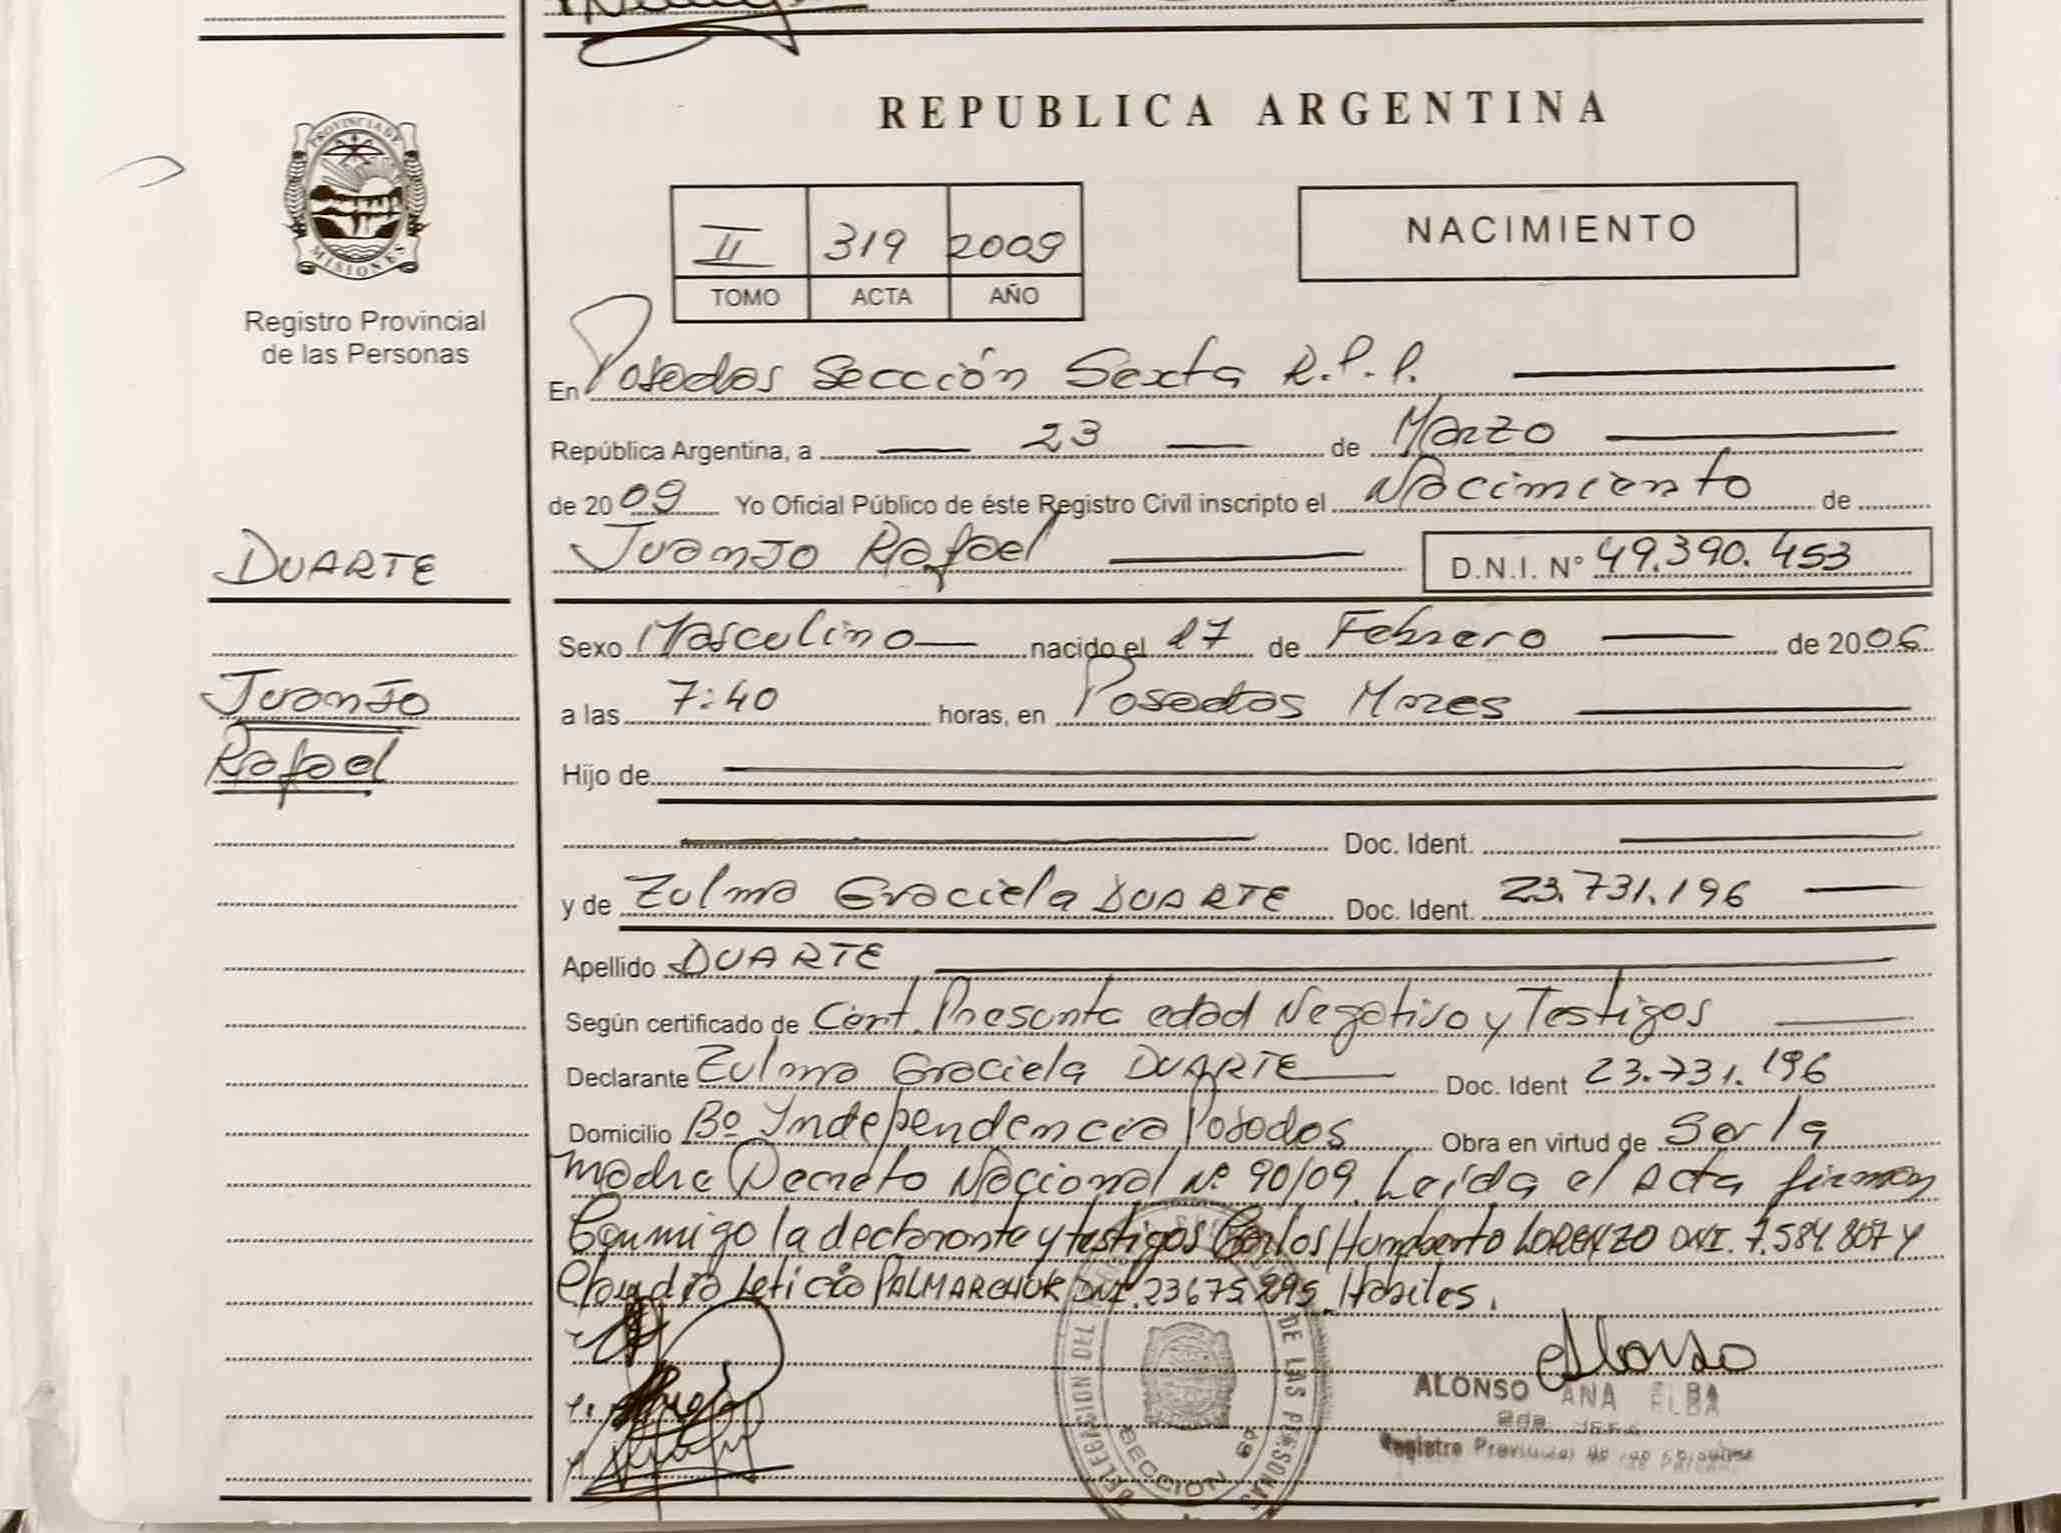 PROVINCIA DE
MISIONES
Registro Provincial
de las Personas
DUARTE
Juanjo
Rafael
REPUBLICA ARGENTINA
II 319 2009
TOMO ACTA AÑO
NACIMIENTO
En Posadas Sección Sexta R.P.P.
República Argentina, a 23 de Marzo
de 2009 Yo Oficial Público de éste Registro Civil inscripto el Nacimiento de
Juanjo Rafael D.N.I. Nº 49.390.453
Sexo Masculino nacido el 27 de Febrero de 2006
a las 7:40 horas, en Posadas Mnes
Hijo de
Doc. Ident.
y de Zulma Graciela DUARTE Doc. Ident. 23.731.196
Apellido DUARTE
Según certificado de Cert. Presunta edad Negativo y Testigos
Declarante Zulma Graciela DUARTE Doc. Ident 23.731.196
Domicilio Bº Independencia Posadas Obra en virtud de Ser la
madre Decreto Nacional Nº 90/09. Leída el Acta firman
Conmigo la declarante y testigos Carlos Humberto LORENZO DNI. 7.584.807 y
Claudia Leticia PALMARCHUK DNI. 23675295. Hábiles.
Alonso
ALONSO ANA ELBA
Registro Provincial de las Personas
DELEGACION DEL DE LAS PERSONAS
SECCION 6ª